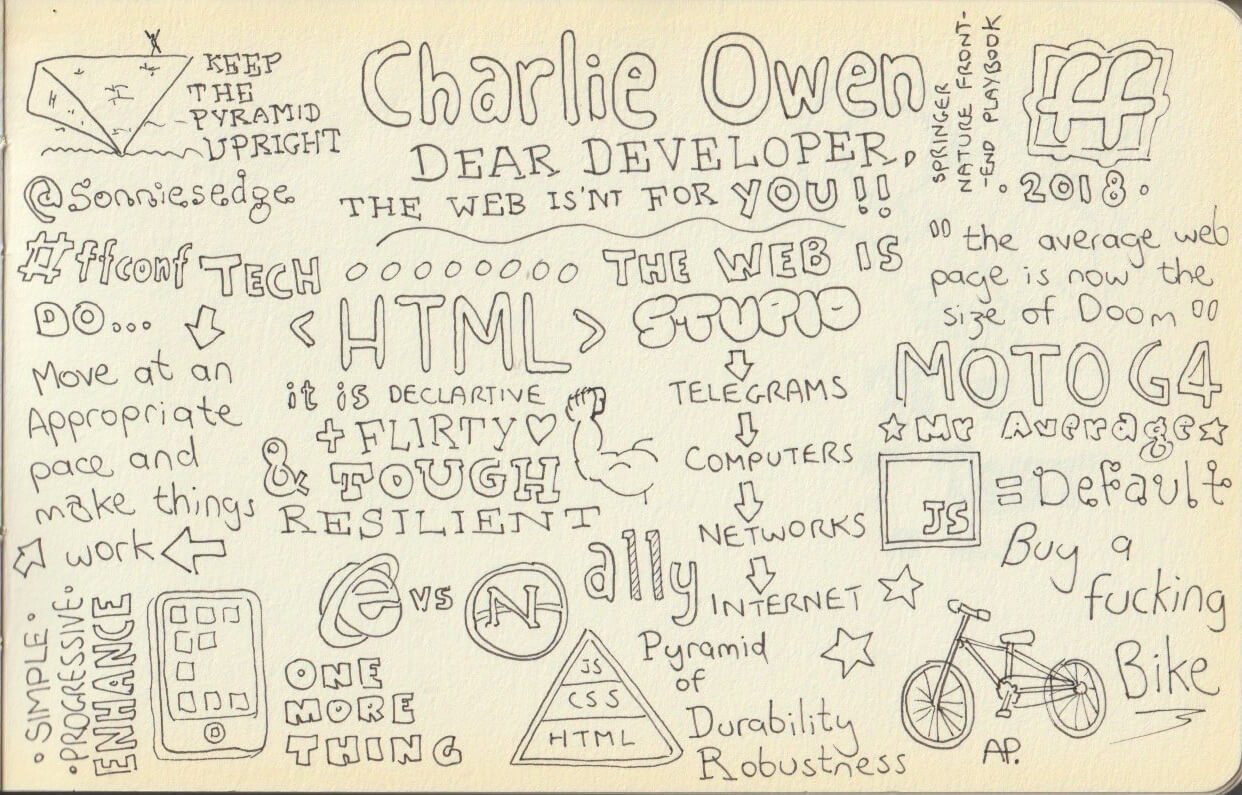 KEEP
THE
PYRAMID
UPRIGHT
Charlie Owen
DEAR DEVELOPER,
THE WEB IS'NT FOR YOU!!
SPRINGER
NATURE FRONT-
-END PLAYBOOK
ff
• 2018 •
@Sonniesedge
#ffconf
TECH
DO...
Move at an
Appropriate
pace and
make things
work
<HTML>
it is DECLARTIVE
+ FLIRTY♡
& TOUGH
RESILIENT
THE WEB IS
STUPID
TELEGRAMS
COMPUTERS
NETWORKS
INTERNET
"the average web
page is now the
size of Doom"
MOTO G4
☆ Mr Average ☆
JS = Default
Buy a
fucking
Bike
• SIMPLE •
• PROGRESSIVE •
ENHANCE
e vs N
ONE
MORE
THING
a11y
JS
CSS
HTML
Pyramid
of
Durability
Robustness
AP.